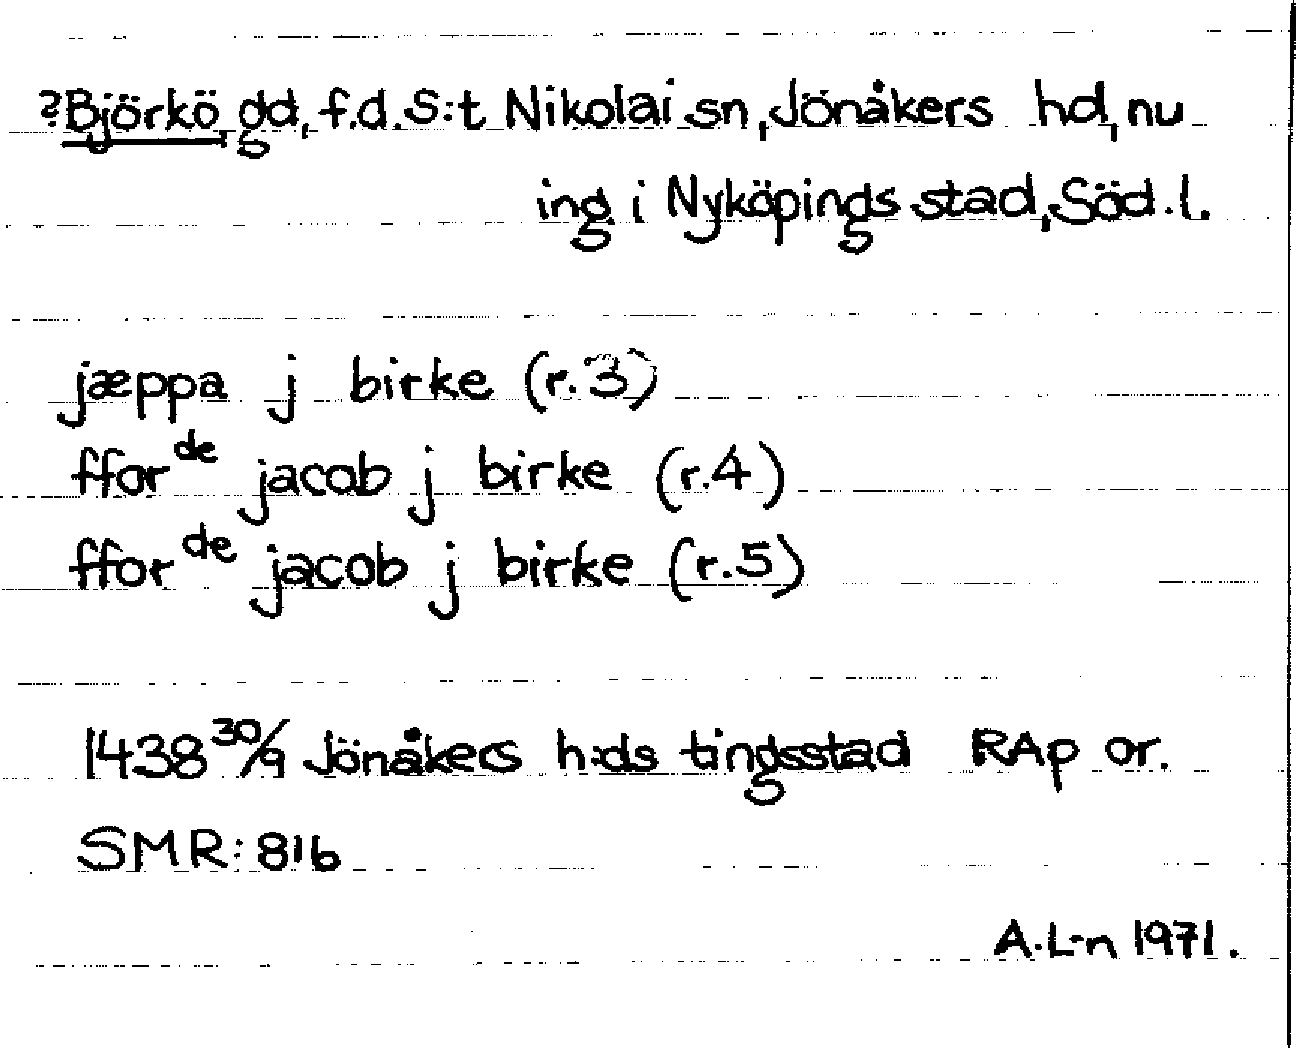 ?Björkö, gd, f.d. S:t Nikolai sn, Jönåkers hd, nu
ing i Nyköpings stad, Söd.l.
jæppa j birke (r.3)
ffor de jacob j birke (r.4)
ffor de jacob j birke (r.5)
1438 30/9 Jönåkers h:ds tingsstad RAp or.
SMR: 816
A.L-n 1971.